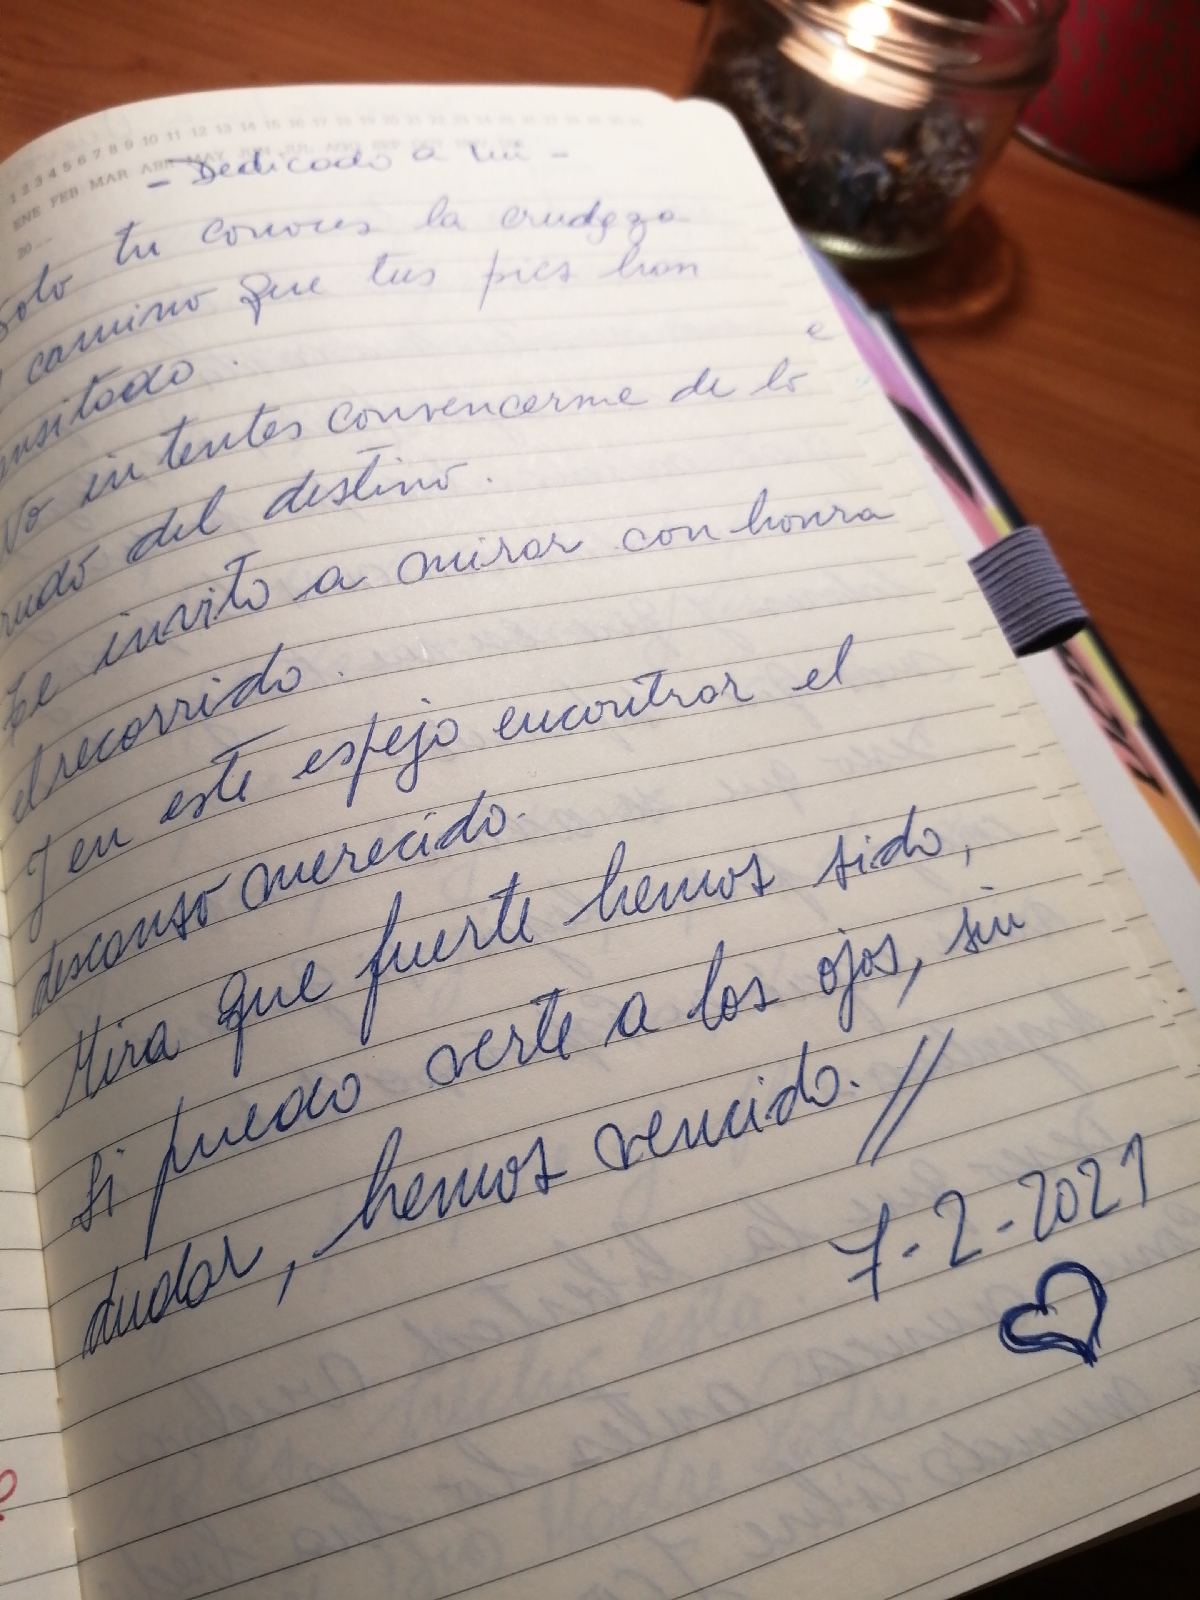 1 2 3 4 5 6 7 8 9 10 11 12 13 14 15 16 17 18 19 20
ENE FEB MAR ABR MAY JUN JUL AGO
20
- Dedicado a mi -
Solo tu conoces la crudeza
camino que tus pies han
nsitado.
e
No intentes convencerme de lo
rudo del destino.
Te invito a mirar con honra
el recorrido.
Y en este espejo encontrar el
descanso merecido.
Mira que fuerte hemos sido,
Si puedo verte a los ojos, sin
dudar, hemos vencido. //
7-2-2021